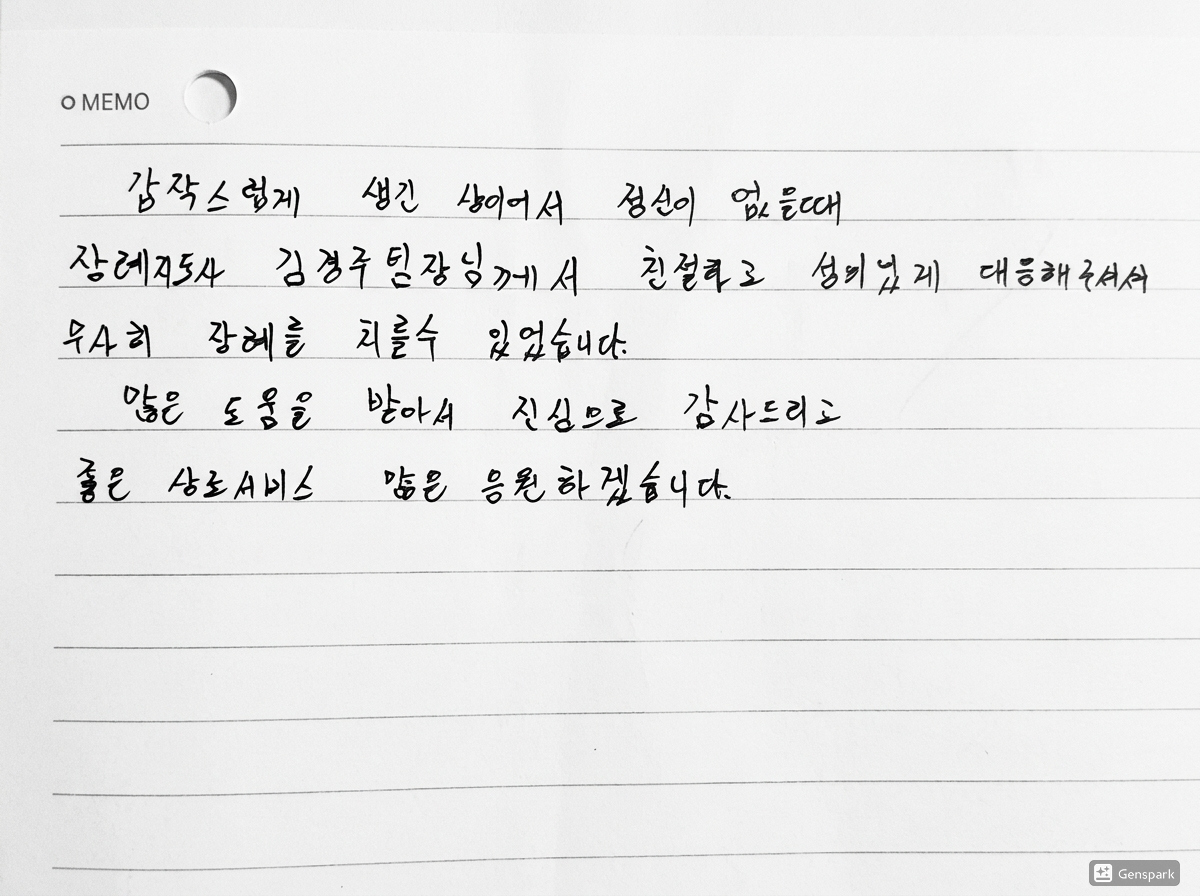 MEMO
갑작스럽게 생긴 상이어서 정신이 없을때
장례지도사 김경주팀장님께서 친절하고 성의있게 대응해주셔서
무사히 장례를 치를수 있었습니다.
많은 도움을 받아서 진심으로 감사드리고
좋은 상조서비스 많은 응원하겠습니다.
Genspark